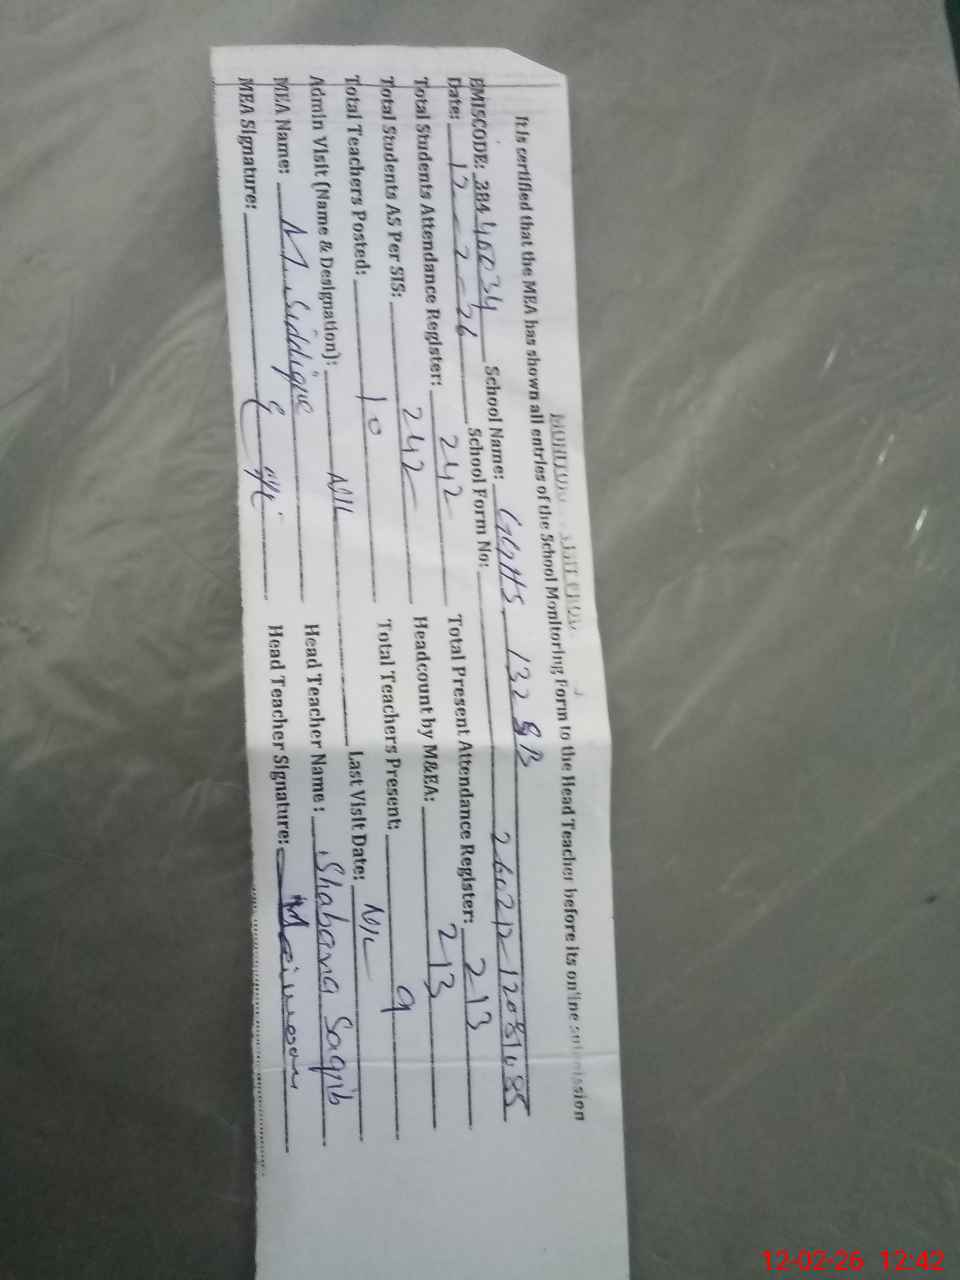 It is certified that the MEA has shown all entries of the School Monitoring Form to the Head Teacher before its online submission
EMISCODE: 38440034 School Name: GGHS 132 SB
Date: 12-2-26 School Form No: 260212-12081085
Total Students Attendance Register: 242 Total Present Attendance Register: 213
Total Students AS Per SIS: 242 Headcount by M&EA: 213
Total Teachers Posted: 10 Total Teachers Present: 9
Admin Visit (Name & Designation): NIL Last Visit Date: NIL
MEA Name: M. Siddique Head Teacher Name : Shabana Saqib
MEA Signature: Head Teacher Signature:
12-02-26 12:42